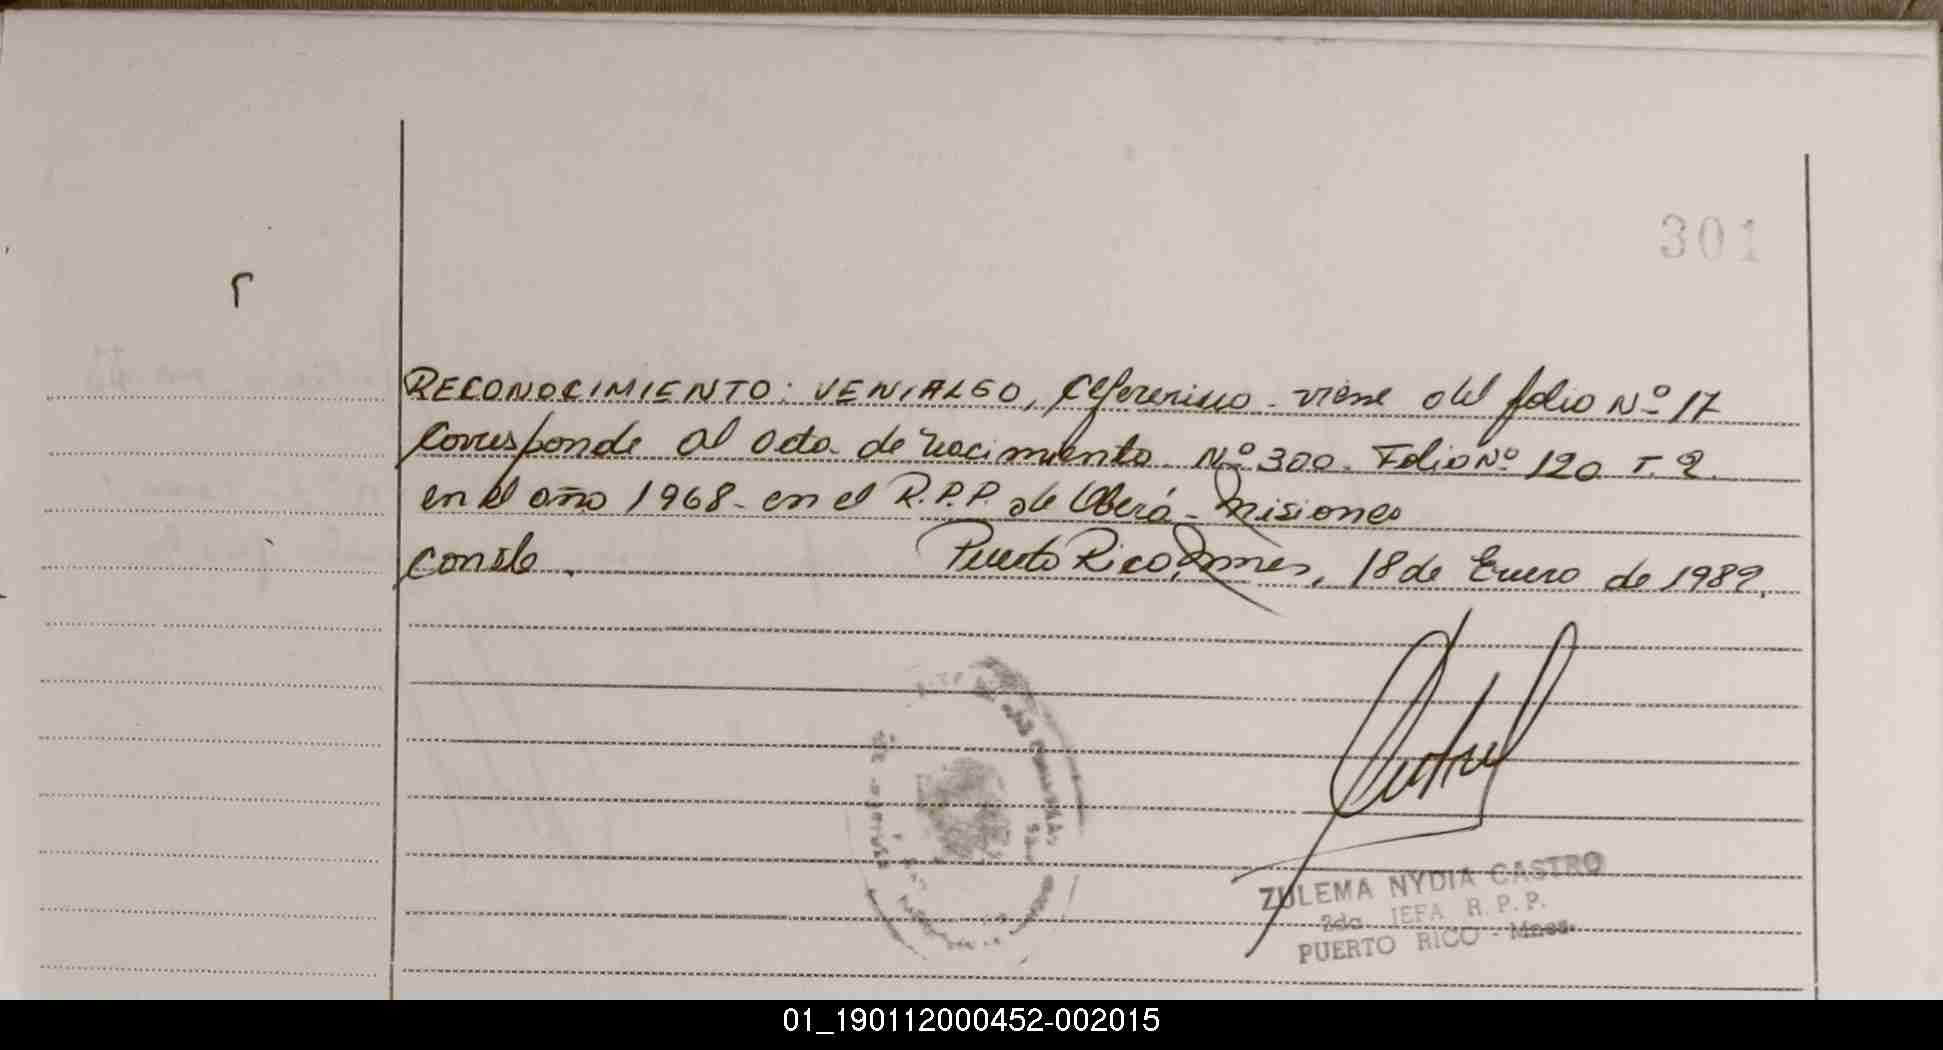 301
RECONOCIMIENTO: VENIALGO, Ceferenino - viene del folio Nº 17
Corresponde al acta de nacimiento Nº 300. Folio Nº 120 T. 2.
en el año 1968 - en el R.P.P. de Oberá - Misiones
Conste. Puerto Rico, Mnes, 18 de Enero de 1982.
ZULEMA NYDIA CASTRO
2da. JEFA R.P.P.
PUERTO RICO - Mnes.
01_190112000452-002015